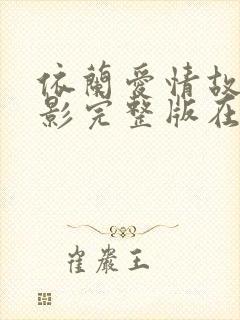 依蘭愛情故
影完整版在
崔嚴王